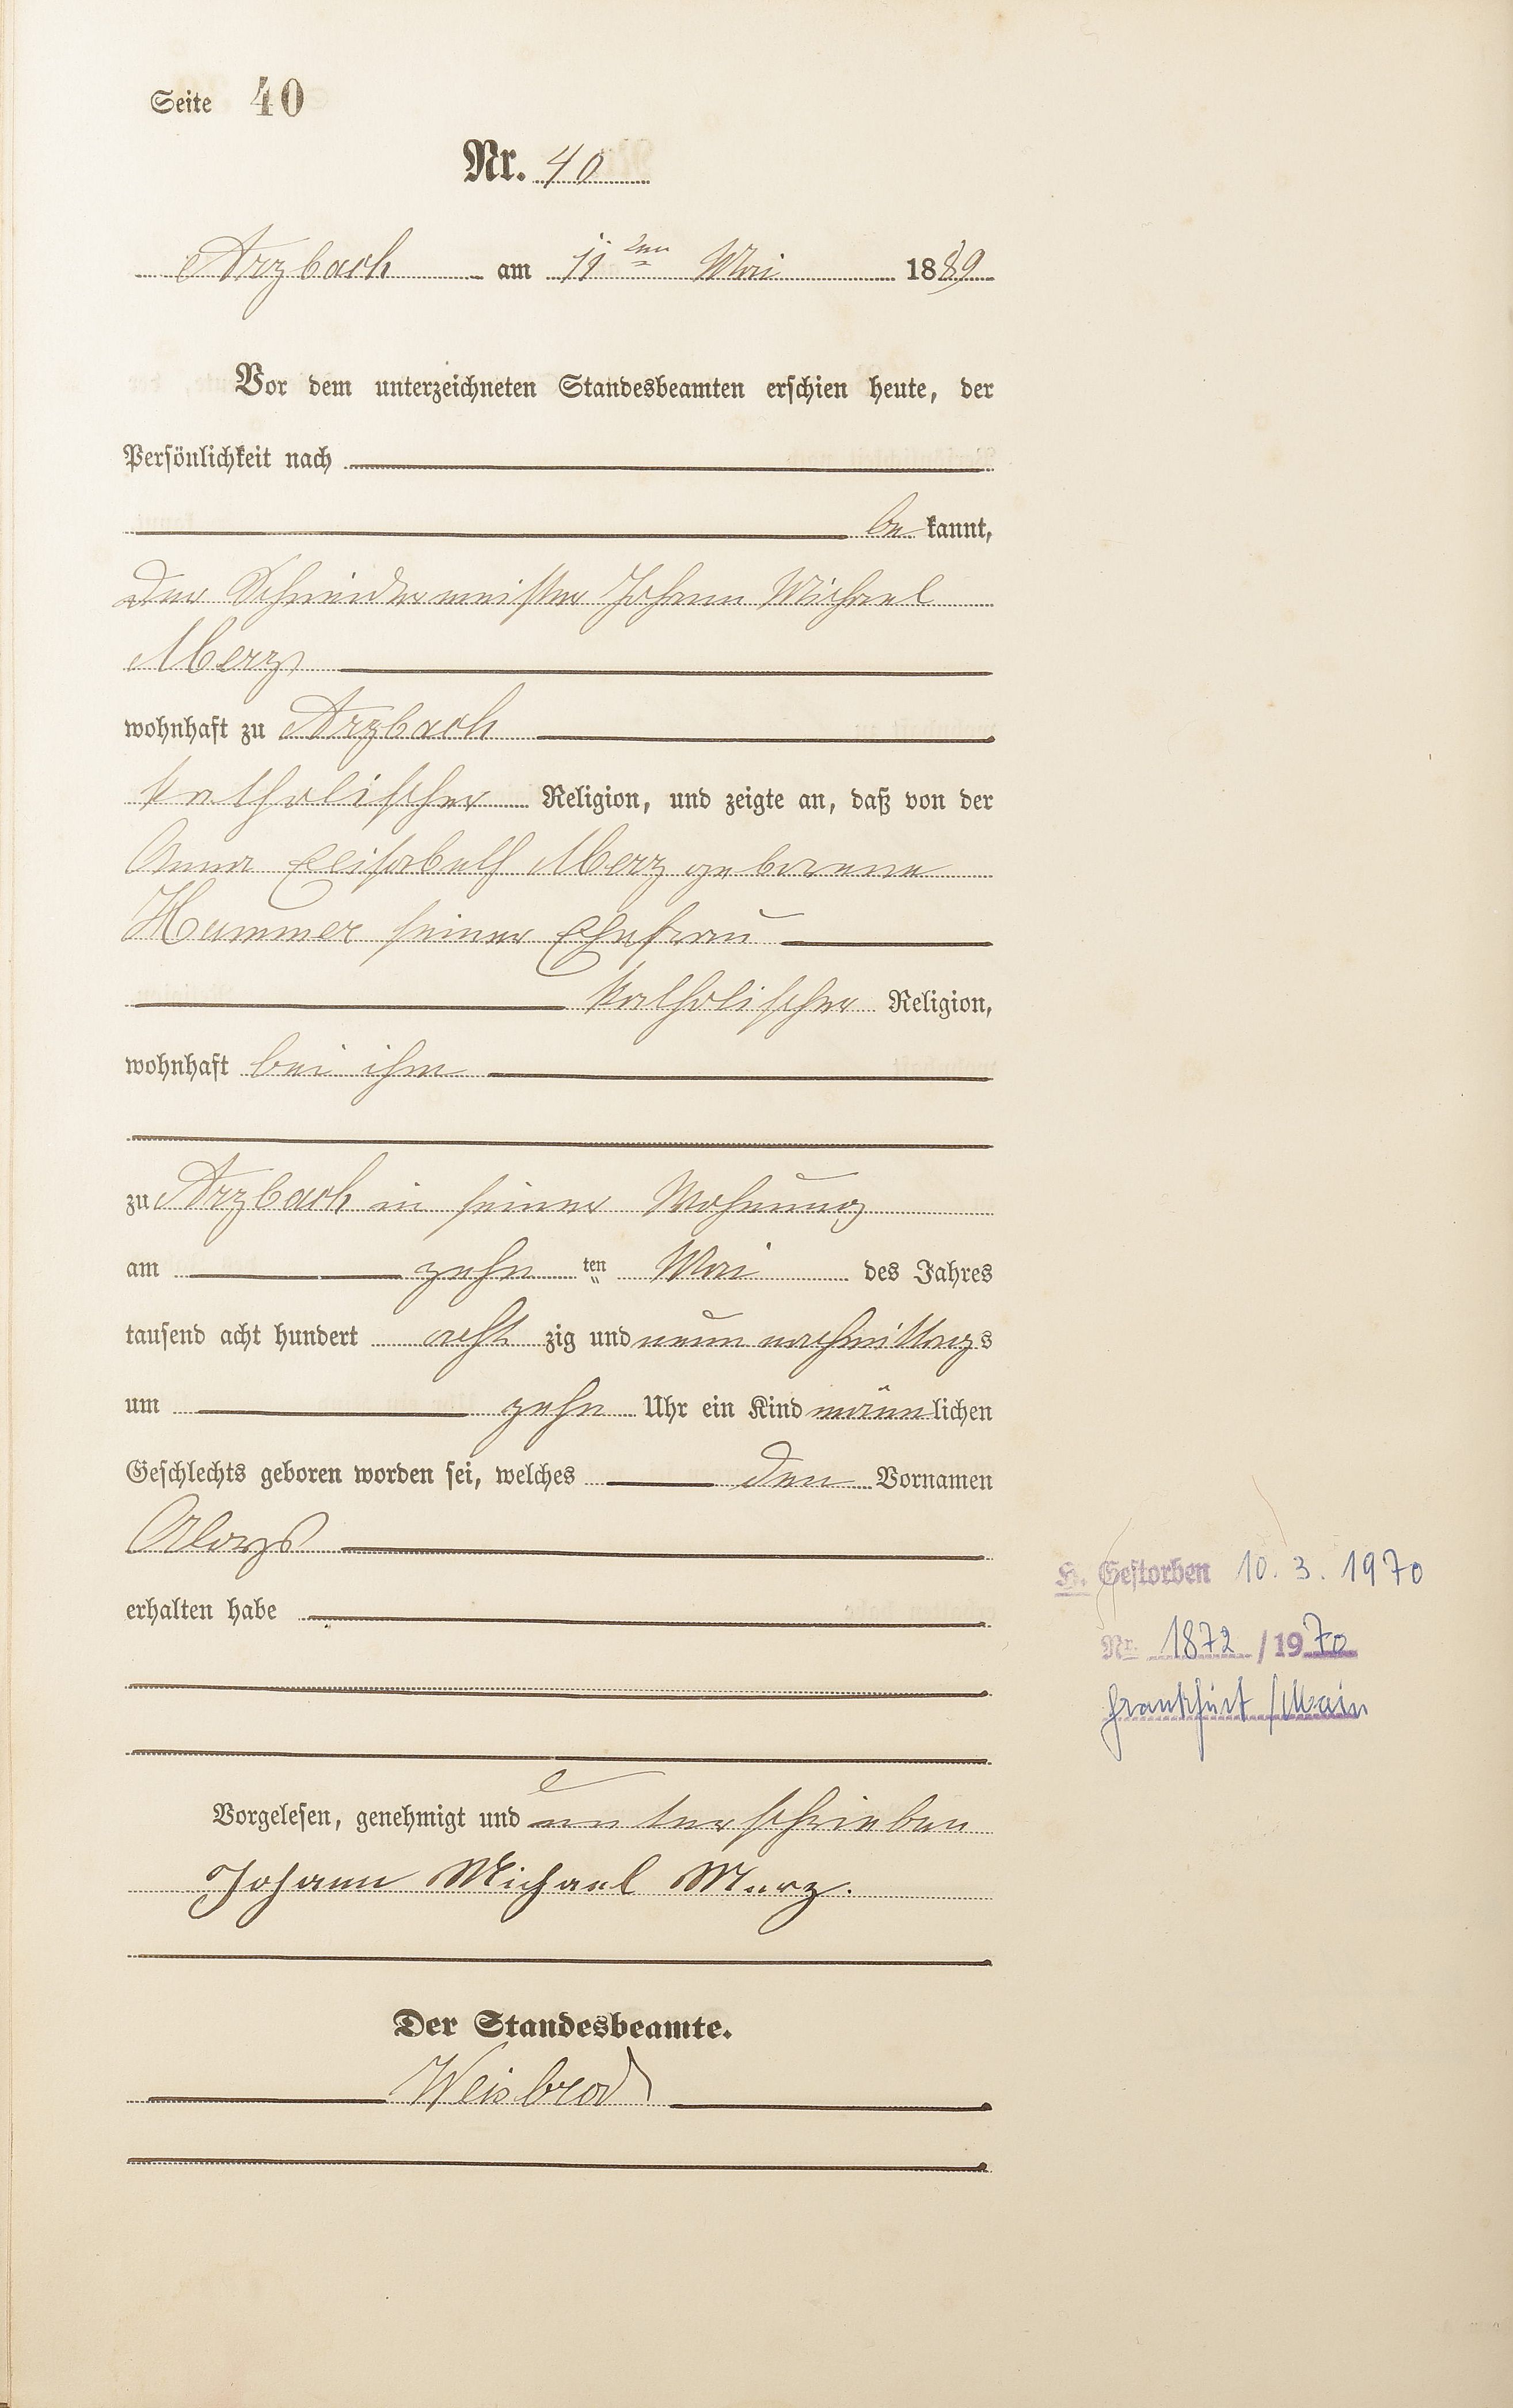 Seite 40
Nr. 40
Arzbach am 11ten Mai 1889
Vor dem unterzeichneten Standesbeamten erschien heute, der
Persönlichkeit nach
be kannt,
Der Schneidermeister Johann Michael
Merz
wohnhaft zu Arzbach
katholischer Religion, und zeigte an, daß von der
Anna Elisabeth Merz geborene
Hummer seiner Ehefrau
katholischer Religion,
wohnhaft bei ihm
zu Arzbach in seiner Wohnung
am zehn ten Mai des Jahres
tausend acht hundert acht zig und neun nachmittags
um zehn Uhr ein Kind männlichen
Geschlechts geboren worden sei, welches den Vornamen
Aloys
erhalten habe
H. Gestorben 10. 3. 1970
Nr. 1872 /1970
Frankfurt /Main
Vorgelesen, genehmigt und unterschrieben
Johann Michael Merz.
Der Standesbeamte.
Weisbrod